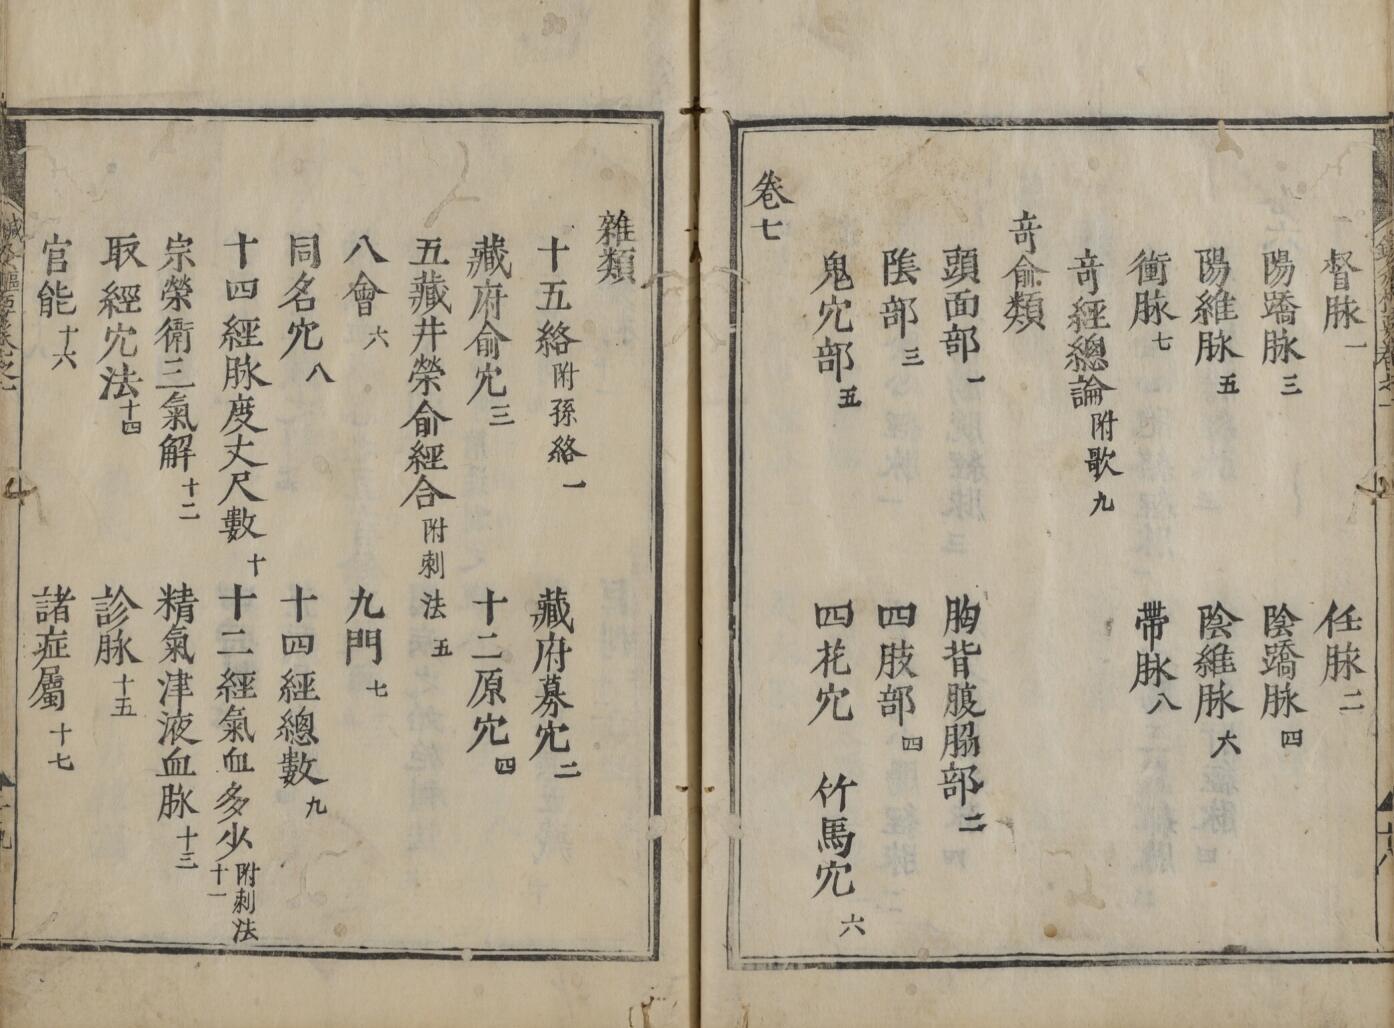 督脉一 任脉二
陽蹻脉三 陰蹻脉四
陽維脉五 陰維脉六
衝脉七 帶脉八
竒經總論附歌九
竒俞類
頭面部一 胸背腹脇部二
陰部三 四肢部四
鬼穴部五 四花穴 竹馬穴六
卷七
雜類
十五絡附孫絡一 藏府募穴二
藏府俞穴三 十二原穴四
五藏井榮俞經合附刺法五
八會六 九門七
同名穴八 十四經總數九
十四經脉度丈尺數十 十二經氣血多少附刺法十一
宗榮衛三氣解十二 精氣津液血脉十三
取經穴法十四 診脉十五
官能十六 諸症屬十七